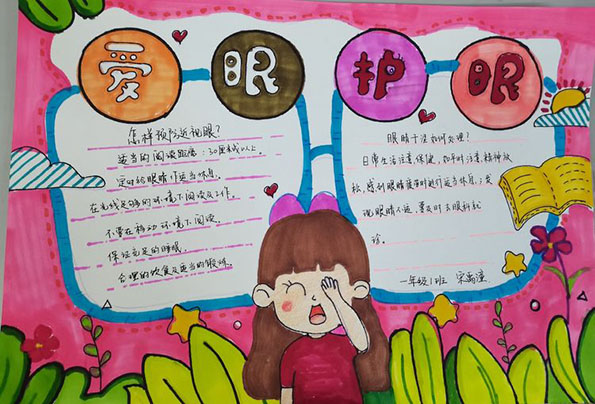 爱眼护眼
怎样预防近视眼?
适当的阅读距离:30厘米或以上
定时给眼睛作适当休息。
在光线足够的环境下阅读及工作。
不要在移动环境下阅读。
保证充足的睡眠。
合理的饮食及适当的锻炼。
眼睛干涩如何处理?
日常生活注意保健,如平时注意精神放
松,感到眼睛疲劳时进行适当休息;发
现眼睛不适,要及时去眼科就
诊。
一年级1班 宋